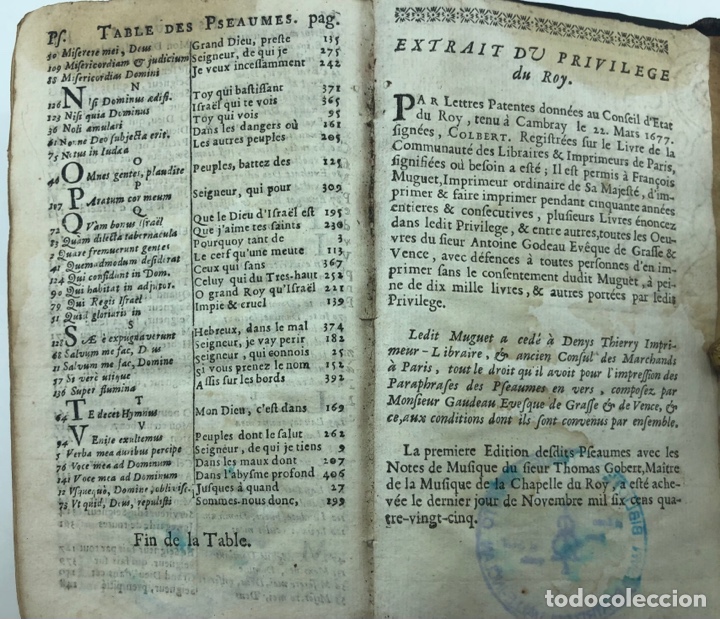 Ps. TABLE DES PSEAUMES. pag.
50 Miserere mei, Deus Grand Dieu, preste 135
109 Misericordiam & judicium Seigneur, de qui je 275
88 Misericordias Domini Je veux incessamment 242
N N
126 NIsi Dominus ædifi. Toy qui bastissant 371
123 Nisi quia Dominus Israël qui te vois 365
36 Noli æmulari Toy qui vois 95
61 Nonne Deo subjecta erit. Dans les dangers où 161
75 Notus in Iudæa Les autres peuples 205
O O
46 OMnes gentes, plaudite Peuples, battez des 125
P P
107 PAratum cor meum Seigneur, qui pour 309
Q Q
72 QVam bonus Israël Que le Dieu d'Israël est 195
83 Quam dilecta tabernacula Que j'aime tes saints 230
2 Quare fremuerunt gentes Pourquoy tant de 3
41 Quemadmodum desiderat Le cerf qu'une meute 113
124 Qui confidunt in Dom. Ceux qui sans 367
90 Qui habitat in adjutor. Celuy qui du Tres-haut 252
79 Qui Regis Israël O grand Roy qu'Israël 221
51 Quid gloriaris in Impie & cruel 139
S S
SÆpe expugnaverunt Hebreux, dans le mal 374
68 Salvum me fac, Deus Seigneur, je vay perir 182
11 Salvum me fac, Domine Seigneur, qui connois 25
57 Si verè utique Si vous prenez le nom 152
136 Super flumina Assis sur les bords 392
T T
64 TE decet Hymnus Mon Dieu, c'est dans 169
V V
94 VEnite exultemus Peuples dont le salut 262
5 Verba mea auribus percipe Seigneur, de qui je tiens 9
76 Voce mea ad Dominum Dans les maux dont 207
141 Voce mea ad Dominum Dans l'abysme profond 406
12 Vsquequò, Domine, oblivisc. Jusques à quand 27
73 Vt quid, Deus, repulisti Sommes-nous donc, 199
Fin de la Table.
EXTRAIT DV PRIVILEGE
du Roy.
PAR Lettres Patentes données au Conseil d'Etat
du Roy, tenu à Cambray le 22. Mars 1677.
signées, COLBERT. Registrées sur le Livre de la
Communauté des Libraires & Imprimeurs de Paris,
signifiées où besoin a esté; Il est permis à François
Muguet, Imprimeur ordinaire de Sa Majesté, d'im-
primer & faire imprimer pendant cinquante années
entieres & consecutives, plusieurs Livres énoncez
dans ledit Privilege, & entre autres, toutes les Oeu-
vres du sieur Antoine Godeau Evêque de Grasse &
Vence, avec défences à toutes personnes d'en im-
primer sans le consentement dudit Muguet, à pei-
ne de dix mille livres, & autres portées par ledit
Privilege.
Ledit Muguet a cedé à Denys Thierry Impri-
meur-Libraire, & ancien Consul des Marchands
à Paris, tout le droit qu'il avoit pour l'impression des
Paraphrases des Pseaumes en vers, composez par
Monsieur Gaudeau Evesque de Grasse & de Vence, &
ce, aux conditions dont ils sont convenus par ensemble.
La premiere Edition desdits Pseaumes avec les
Notes de Musique du sieur Thomas Gobert, Maître
de la Musique de la Chapelle du Roy, a esté ache-
vée le dernier jour de Novembre mil six cens qua-
tre-vingt-cinq.
todocoleccion.net